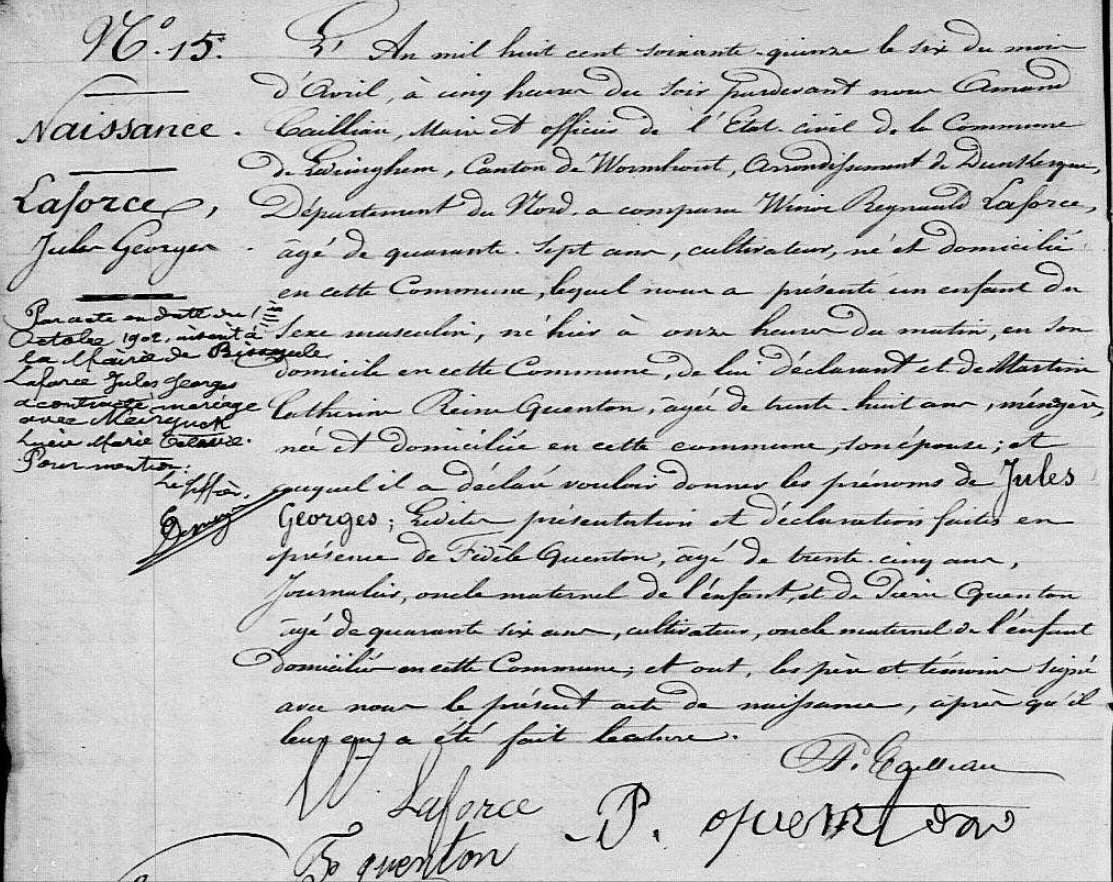 N.° 15.
Naissance.
Laforce,
Jules Georges.
Par acte en date du 1
Octobre 1902, inscrit à
la Mairie de
Laforce Jules Georges
a contracté mariage
avec
Lucie Marie
Pour mention:
Le Greffier,
L'An mil huit cent soixante-quinze le six du mois
d'Avril, à cinq heures du soir pardevant nous Amand
Cailliau, Maire et officier de l'Etat-civil de la Commune
de Ledringhem, Canton de Wormhout, Arrondissement de Dunkerque,
Département du Nord, a comparu Winoc Reynauld Laforce,
âgé de quarante-sept ans, cultivateur, né et domicilié
en cette Commune, lequel nous a présenté un enfant du
sexe masculin, né hier à onze heures du matin, en son
domicile en cette Commune, de lui déclarant et de Martine
Catherine Reine Quenton, âgée de trente-huit ans, ménagère,
née et domiciliée en cette commune, son épouse; et
auquel il a déclaré vouloir donner les prénoms de Jules
Georges; Lesdites présentation et déclaration faites en
présence de Fidèle Quenton, âgé de trente-cinq ans,
Journalier, oncle maternel de l'enfant, et de Pierre Quenton
âgé de quarante six ans, cultivateur, oncle maternel de l'enfant
domiciliés en cette Commune; et ont, les père et témoins signé
avec nous le présent acte de naissance, après qu'il
leur en a été fait lecture.
A. Cailliau
W Laforce
P. quenton
F quenton